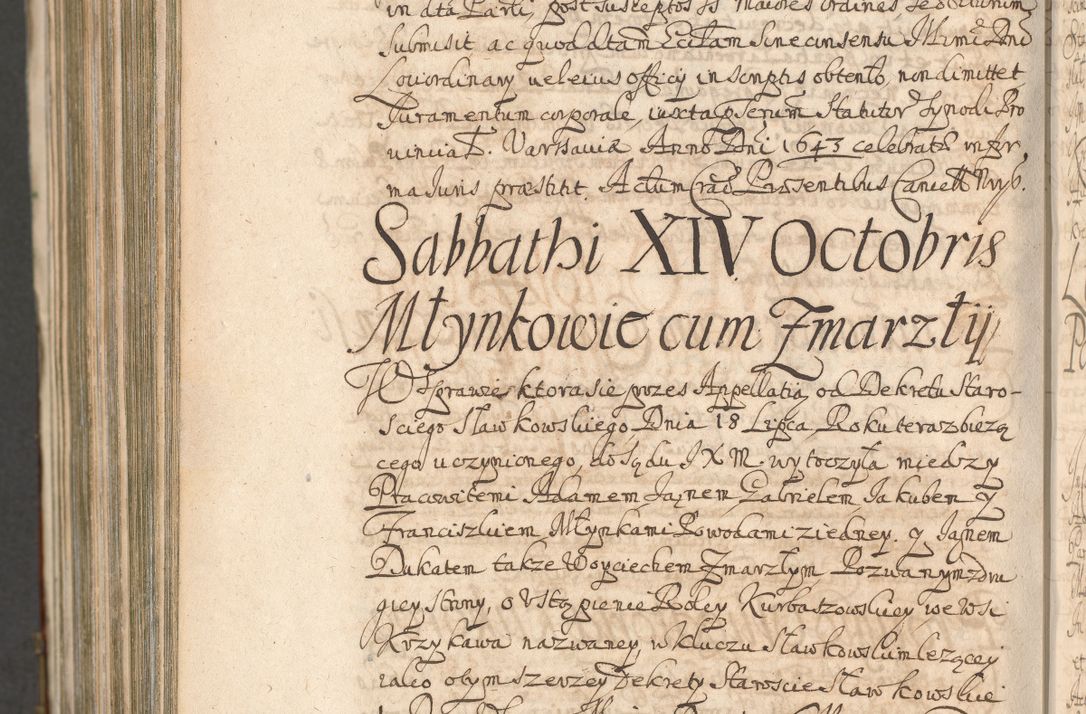 in dta Parti, post susceptos ss Maiores ordines se
submisit ac quod dtam Ecctam sine consensu Illmi Dni
Loci ordinary vel eius officy in scriptis obtento non dimittet
Juramentum corporale, iuxta Statutor Synodi Pro
vinciat. Varsaviæ Anno Dni 1643 celebratæ in for
ma Juris præstitit. Actum Crac Præsentibus
Sabbathi XIV Octobris
Młynkowie cum Zmarzłÿ
W Sprawie ktora sie przes Appellatią od Dekretu Staro-
sciego Sławkowskiego Dnia 18 Lipca Roku teraz biezą
cego uczynionego, do Sądu J X M. wytoczyła miedzy
Pracowitemi Adamem, Jaṇem, Gabrielem, Jakubem y
Franciszkiem Młynkami Powodami z iedney. y Janem
Dukatem takze Woyciechem Zmarzłym Pozwanym z dru
giey strony, o Ustąpienie Roley Kurbaszowskiey we Wsi
Krzykawa nazwaney, w kluczu Sławkowskim lezącey
iako obym szerzey Dekrety Staroscie Sławkowskie